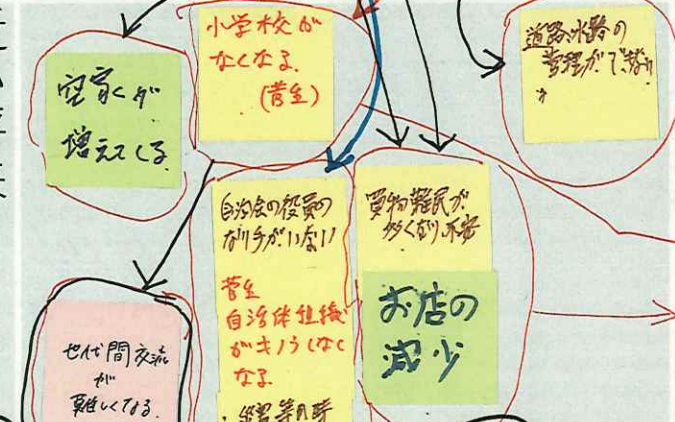 空家が
増えてくる
小学校が
なくなる
(菅生)
道路水路の
管理ができない
自治会の役員の
なり手がいない
菅生
自治体組織
がキノウしなく
なる
買物難民が
多くなり不安
お店の
減少
世代間交流
が
難しくなる